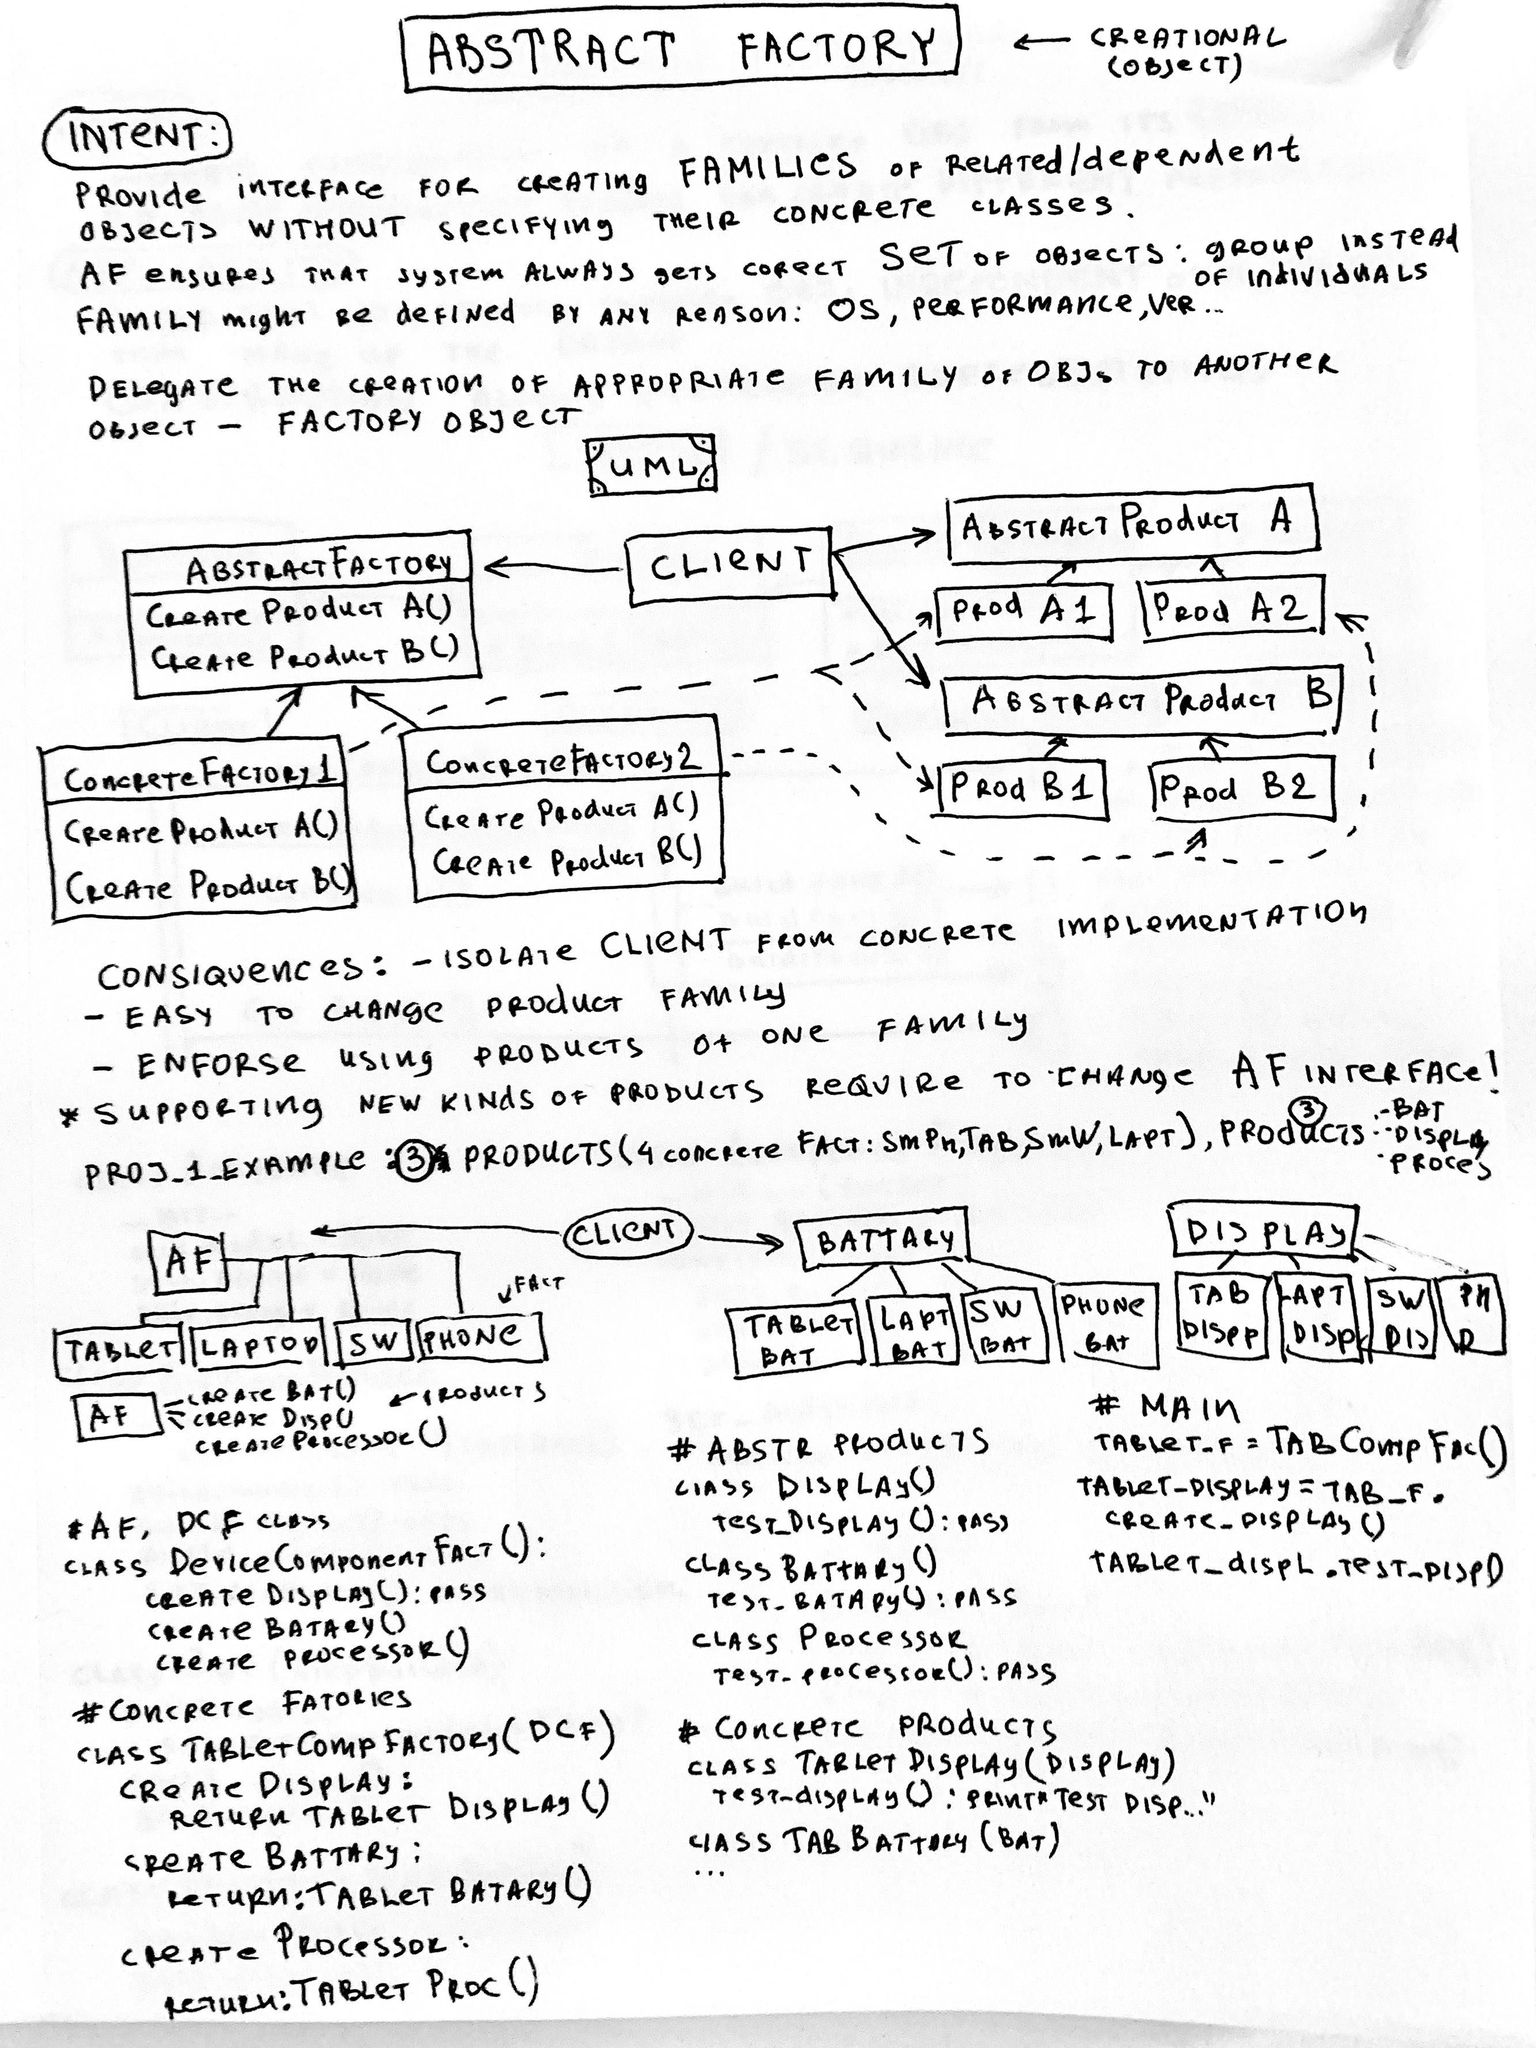 ABSTRACT FACTORY
← CREATIONAL
(OBJECT)
INTENT:
PROVIDE INTERFACE FOR CREATING FAMILIES OF RELATED/dependent
OBJECTS WITHOUT SPECIFYING THEIR CONCRETE CLASSES.
AF ENSURES THAT SYSTEM ALWAYS GETS CORECT SET OF OBJECTS: GROUP INSTEAD
OF INDIVIDUALS
FAMILY MIGHT BE DEFINED BY ANY REASON: OS, PERFORMANCE, VER...
DELEGATE THE CREATION OF APPROPRIATE FAMILY OF OBJS TO ANOTHER
OBJECT – FACTORY OBJECT
UML
ABSTRACTFACTORY
CREATE PRODUCT A()
CREATE PRODUCT B()
CLIENT
ABSTRACT PRODUCT A
PROD A1
PROD A2
ABSTRACT PRODUCT B
PROD B1
PROD B2
CONCRETEFACTORY1
CREATE PRODUCT A()
CREATE PRODUCT B()
CONCRETEFACTORY2
CREATE PRODUCT A()
CREATE PRODUCT B()
CONSIQUENCES: - ISOLATE CLIENT FROM CONCRETE IMPLEMENTATION
- EASY TO CHANGE PRODUCT FAMILY
- ENFORSE USING PRODUCTS OF ONE FAMILY
* SUPPORTING NEW KINDS OF PRODUCTS REQUIRE TO CHANGE AF INTERFACE!
PROJ_1_EXAMPLE: 3 PRODUCTS(4 CONCRETE FACT: SMPH, TAB, SMW, LAPT), PRODUCTS 3
- BAT
- DISPLAY
- PROCES
CLIENT
AF
← FACT
TABLET
LAPTOP
SW
PHONE
BATTARY
TABLET
BAT
LAPT
BAT
SW
BAT
PHONE
BAT
DISPLAY
TAB
DISPP
LAPT
DISP
SW
DIS
PH
D
AF
CREATE BAT()
CREATE DISP()
CREATE PROCESSOR()
← PRODUCTS
# AF, DCF CLASS
CLASS DEVICECOMPONENTFACT():
CREATE DISPLAY(): PASS
CREATE BATARY()
CREATE PROCESSOR()
# CONCRETE FATORIES
CLASS TABLETCOMPFACTORY(DCF)
CREATE DISPLAY:
RETURN TABLET DISPLAY()
CREATE BATTARY:
RETURN: TABLET BATARY()
CREATE PROCESSOR:
RETURN: TABLET PROC()
# ABSTR PRODUCTS
CLASS DISPLAY()
TEST_DISPLAY(): PASS
CLASS BATTARY()
TEST_BATARY(): PASS
CLASS PROCESSOR
TEST_PROCESSOR(): PASS
# CONCRETE PRODUCTS
CLASS TABLET DISPLAY(DISPLAY)
TEST_DISPLAY(): PRINT "TEST DISP..."
CLASS TAB BATTARY(BAT)
...
# MAIN
TABLET_F = TABCOMPFAC()
TABLET_DISPLAY = TAB_F.
CREATE_DISPLAY()
TABLET_DISPL.TEST_DISP()